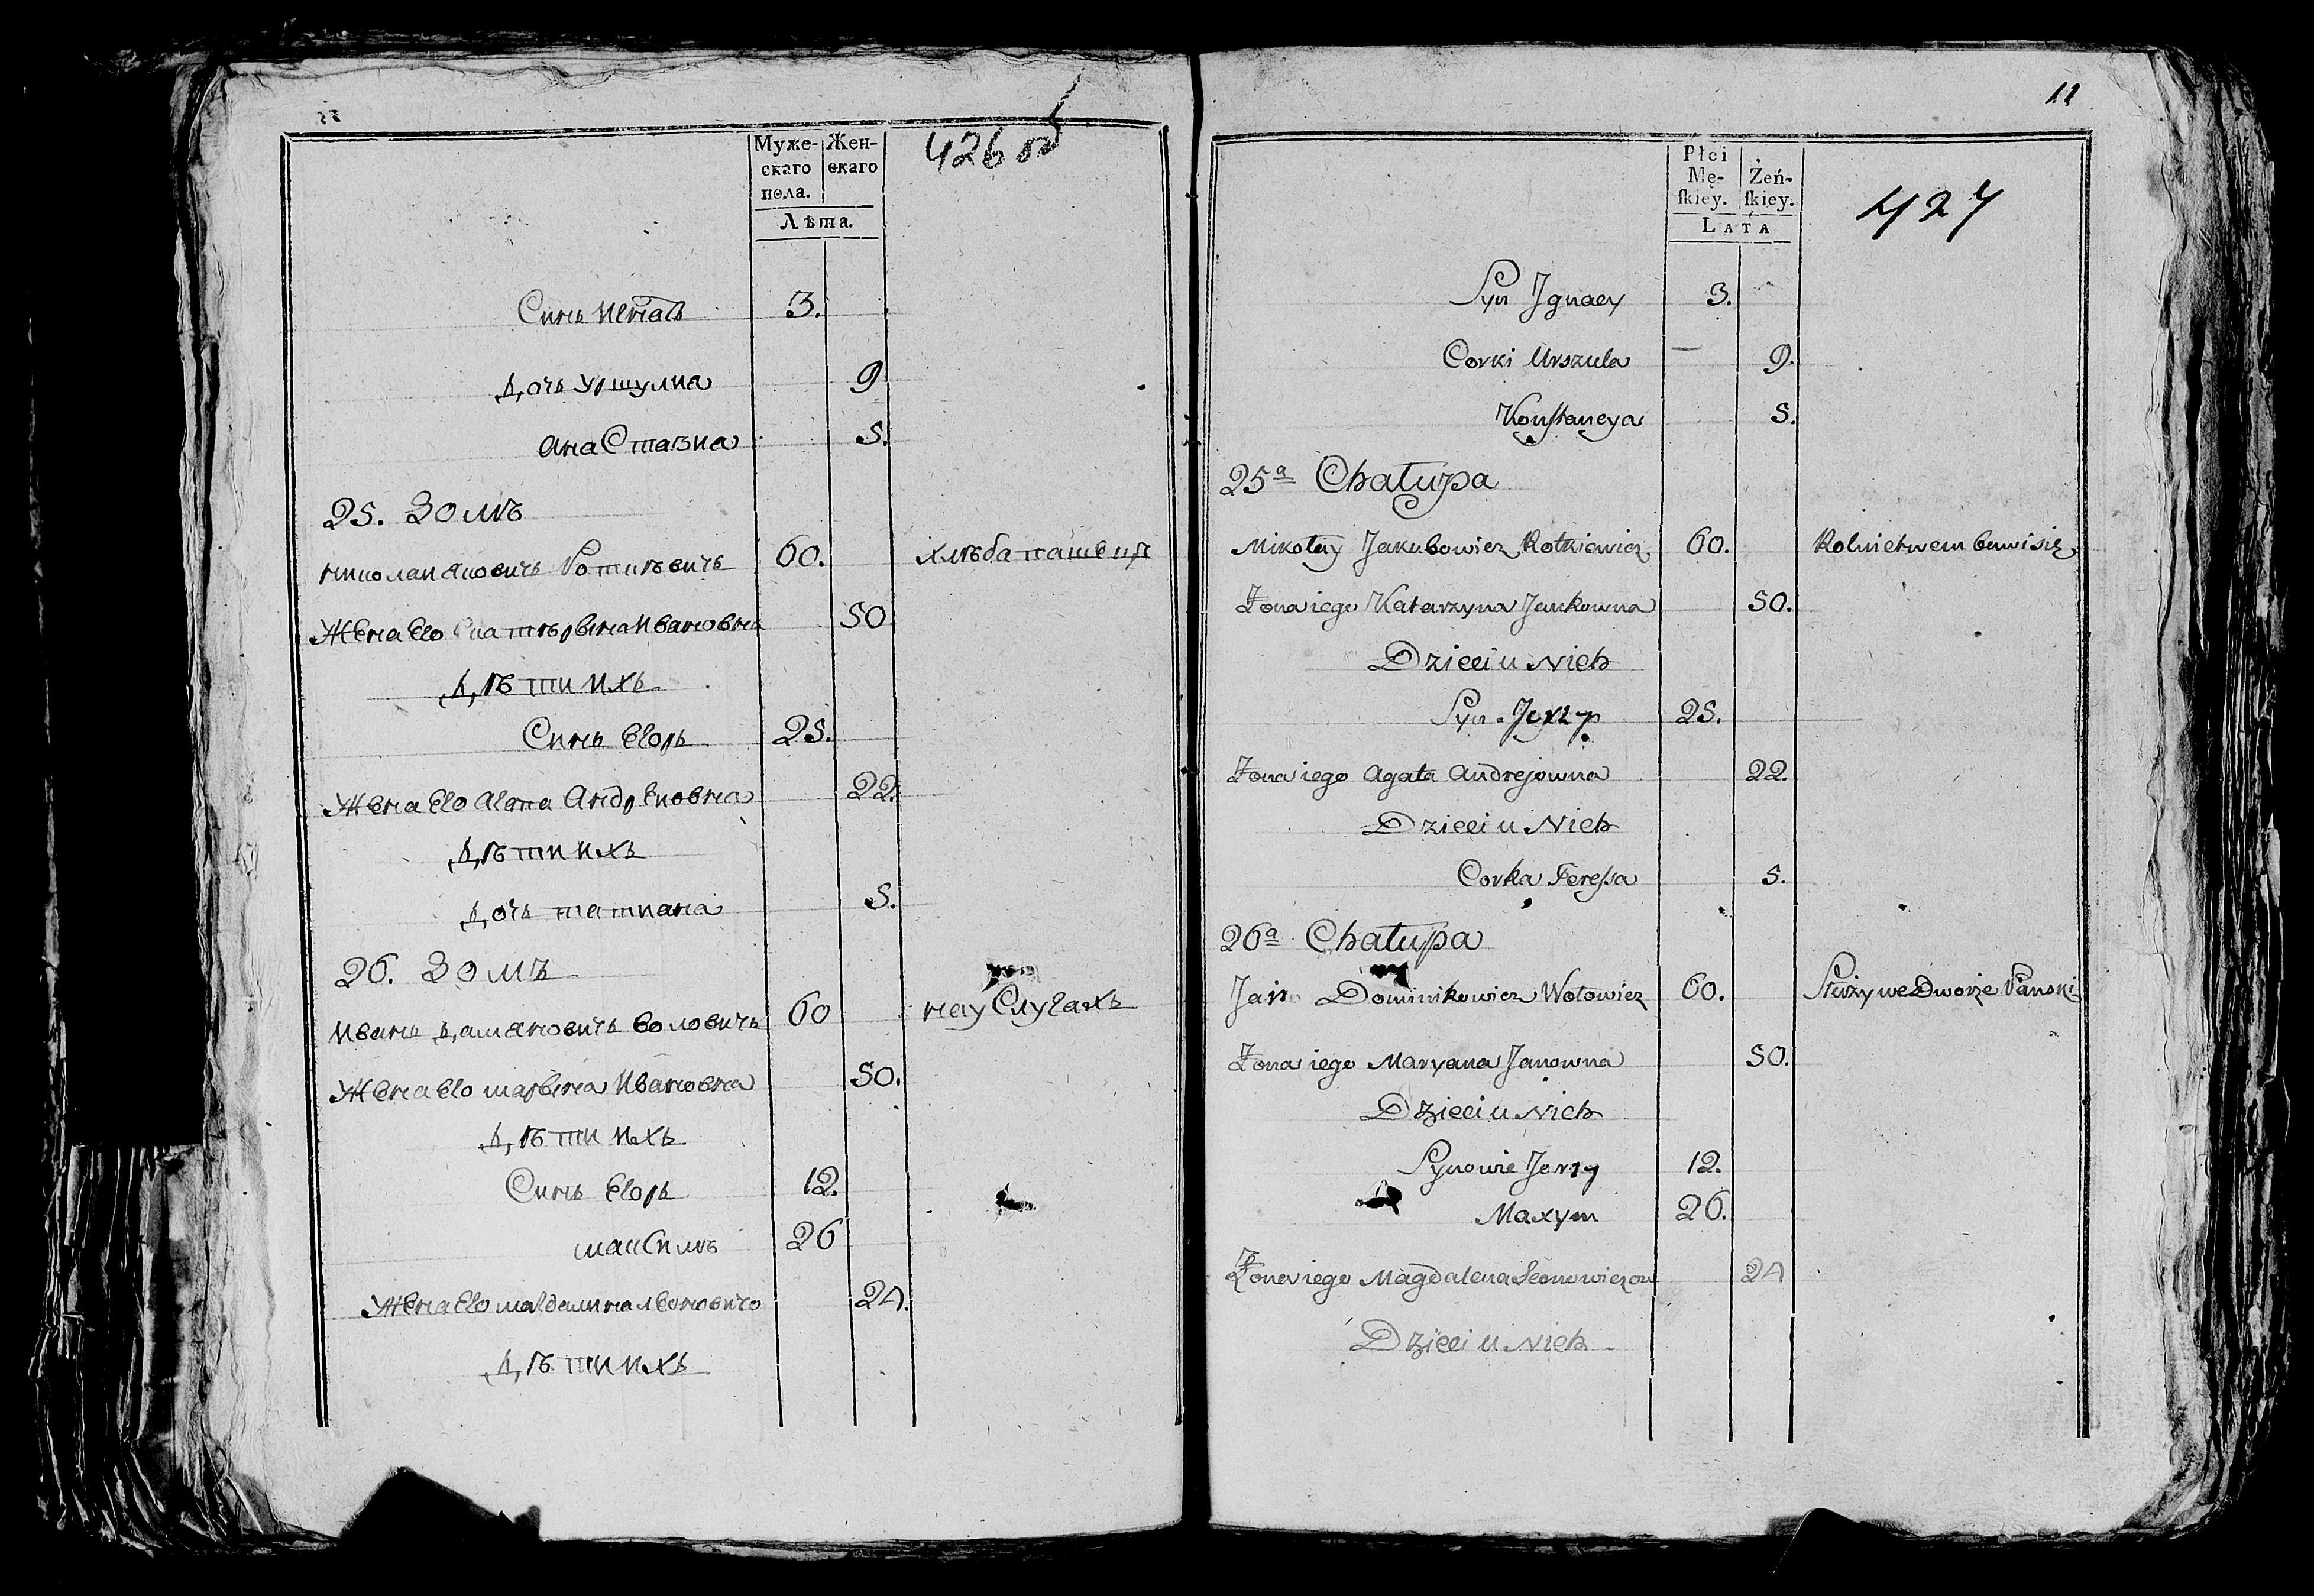 426 об
Муже-
скаго
пола.
Жен-
скаго
Лѣта.
Синъ Игнатъ 3.
Дочь Уршулиа 9
АнаСтазиа 5.
25. Домъ
николаи яковичь Роткѣвичь 60. хлѣба пашець
Жена Его Екатѣрвина Ивановна 50
Дѣти ихъ
Синъ Егоръ 25.
Жена Его Агата Андреновна 22.
Дѣти ихъ
Дочь татиана 5.
26. Домъ
Иванъ Даманович Воловичь 60 на услугахъ
Жена Его марвина Ивановна 50.
Дѣти ихъ
Синъ Егоръ 12.
макСимъ 26
Жена Его магдалина леоновичо 24.
Дѣти ихъ
11
427
Płci
Mę-
ſkiey.
Żeń-
ſkiey.
LATA
Syn Jgnacy 3.
Corki Urszula 9.
Konſtancya 5.
25ª Chałupa
Mikołay Jakubowicz Rotkiewicz 60. Rolnictwem bawi się
Żona iego Katarzyna Jankowna 50.
Dzieci u Nich
Syn Jerzy 25.
Żona iego Agata Andrejowna 22.
Dzieci u Nich
Corka Tereſsa 5.
26ª Chałupa
Jan Dominikowicz Wołowicz 60. Służy we Dworze Pański
Żona iego Maryana Janowna 50.
Dzieci u Nich
Synowie Jerzy 12.
Maxym 26.
Żona iego Magdalena Leonowiczow 24
Dzieci u Nich